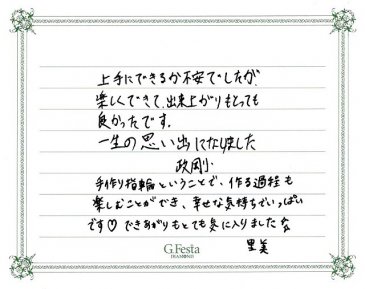 上手にできるか不安でしたが、
楽しくできて、出来上がりもとっても
良かったです。
一生の思い出になりました
政剛
手作り指輪ということで、作る過程も
楽しむことができ、幸せな気持ちでいっぱい
です♡できあがりもとても気に入りました
里美
G.Festa
DIAMOND